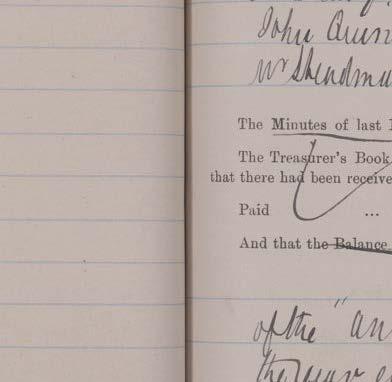 John Quin
Mr Steadma
The Minutes of last
The Treasurer's Book
that there had been receive
Paid ...
And that the Balance
of the "an
the year e